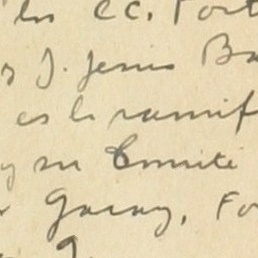 los CC. Fort
s J. Jesus Ba
es le ramif
y su Comité
Garay, Fo